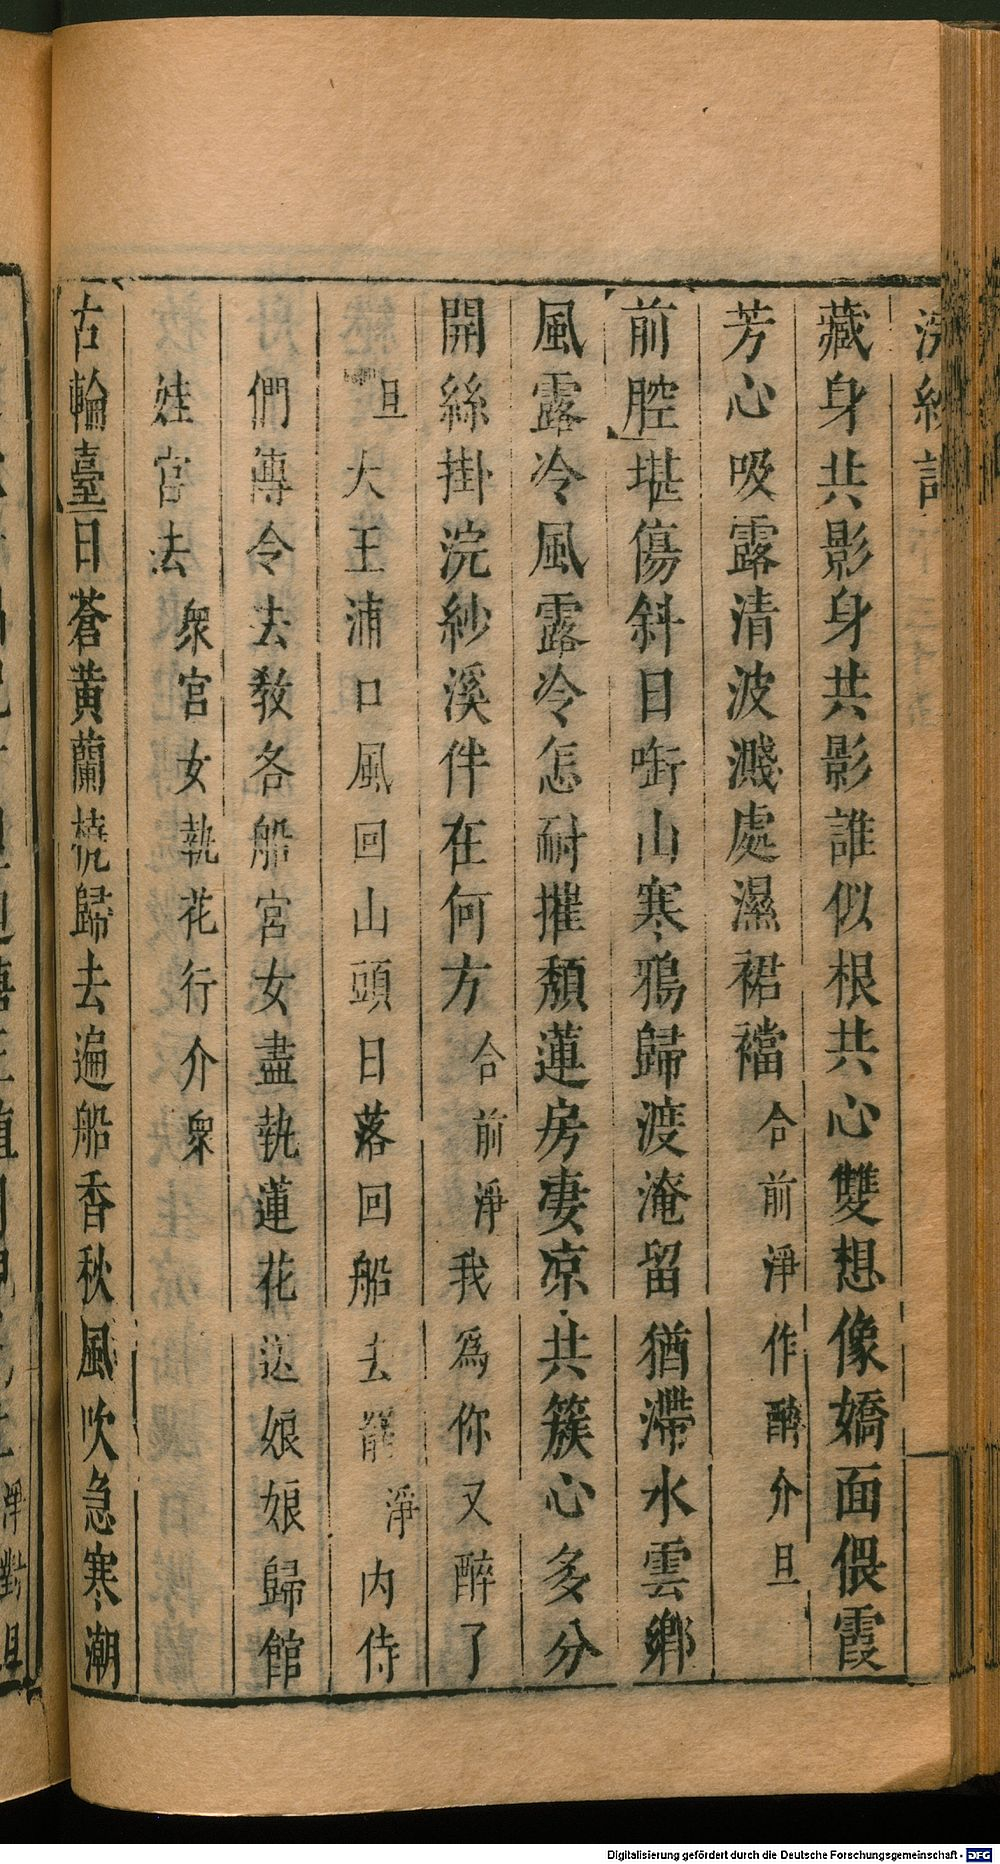 浣紗記
藏身共影身共影誰似根共心雙想像嬌面偎霞
芳心吸露清波濺處濕裙襠合前淨作醉介旦
前腔堪傷斜日啣山寒鴉歸渡淹留猶滯水雲鄉
風露冷風露冷怎耐摧頹蓮房凄凉共簇心多分
開絲掛浣紗溪伴在何方合前淨我為你又醉了
旦大王浦口風回山頭日落回船去罷淨內侍
們傳令去教各船宮女盡執蓮花送娘娘歸館
娃宮去衆宮女執花行介衆
古輪臺日蒼黃蘭橈歸去遍船香秋風吹急寒潮
淨對旦
Digitalisierung gefördert durch die Deutsche Forschungsgemeinschaft - DFG